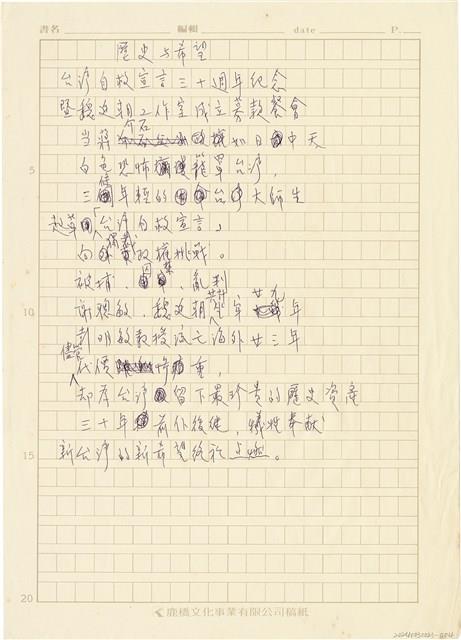 書名 編輯 date P.
歷史与希望
台湾自救宣言三十週年紀念
暨魏廷朝工作室成立募款餐會
當蔣介石 權如日中天
5
白色恐怖 籠罩台湾,
三個年輕的台大師生
起草「台湾自救宣言」
向獨裁政權挑戰。
被捕、囚禁、亂判
10
謝聰敏、魏廷朝坐牢 廿九年
彭明敏教授流亡海外廿三年
代價 重,
却為台湾留下最珍貴的歷史資產
三十年 前仆後继,犧牲奉献
15
新台湾的新希望終於点燃。
20
鹿橋文化事業有限公司稿紙